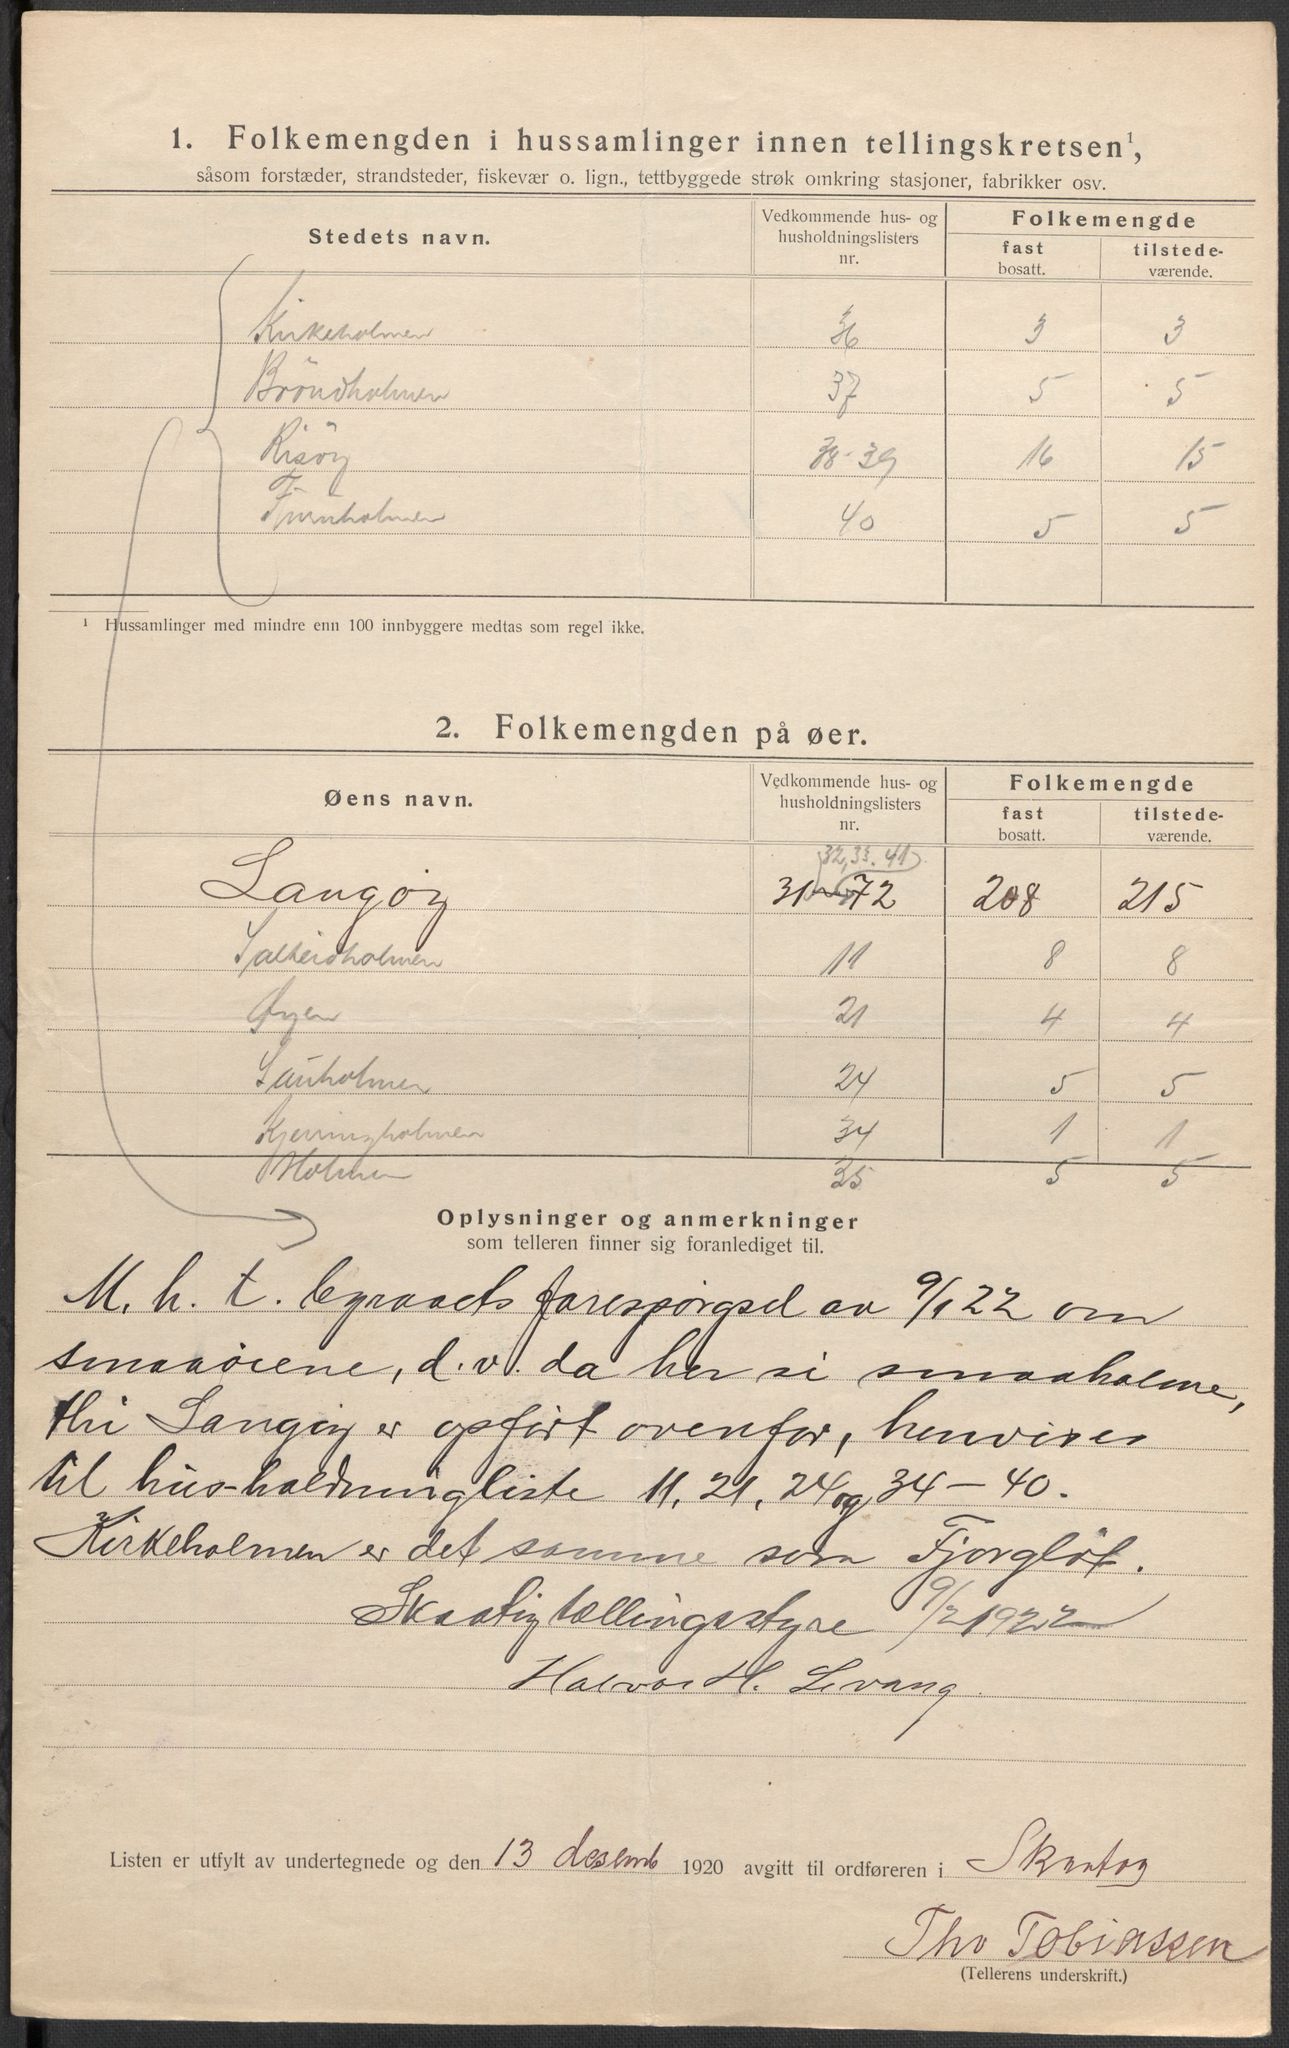 1. Folkemengden i hussamlinger innen tellingskretsen¹,
såsom forstæder, strandsteder, fiskevær o. lign., tettbyggede strøk omkring stasjoner, fabrikker osv.
Stedets navn.
Vedkommende hus- og husholdningslisters nr.
Folkemengde
fast bosatt.
tilstede-værende.
Kirkeholmen 36 3 3
Bröndholmen 37 5 5
Risöy 38-39 16 15
40 5 5
¹ Hussamlinger med mindre enn 100 innbyggere medtas som regel ikke.
2. Folkemengden på øer.
Øens navn.
Vedkommende hus- og husholdningslisters nr.
Folkemengde
fast bosatt.
tilstede-værende.
32, 33, 41
Langöy 31-72 208 215
11 8 8
Öyen 21 4 4
Sauholmen 24 5 5
Kjerringholmen 34 1 1
Holmen 35 5 5
Oplysninger og anmerkninger
som telleren finner sig foranlediget til.
M. h. t. byraaets forespörgsel av 9/1 22 om
smaaöiene, d. v. da her si smaaholme,
thi Langöy er opfört ovenfor, henvises
til hus-holdningliste 11, 21, 24 og 34-40.
Kirkeholmen er det samme som Fjorglöt.
Skaatöy tællingsstyre 9/2 1922
Halvor H. Levang
Listen er utfylt av undertegnede og den 13 desemb 1920 avgitt til ordføreren i Skaatöy
Tho Tobiassen
(Tellerens underskrift.)